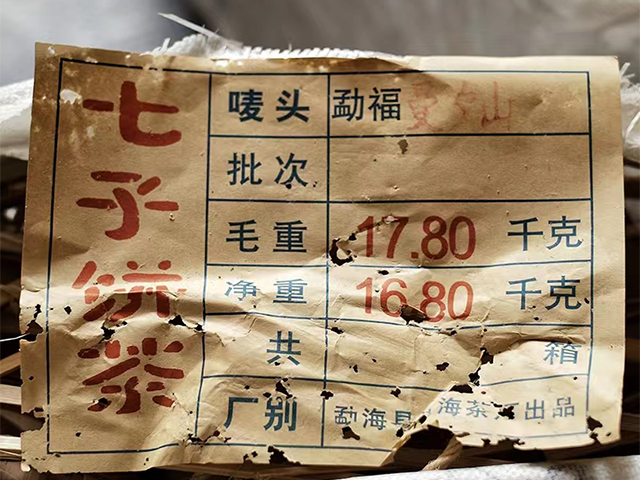 七子饼茶
唛头 勐福 山
批次
毛重 17.80 千克
净重 16.80 千克
共 箱
厂别 勐海县 海茶 出品